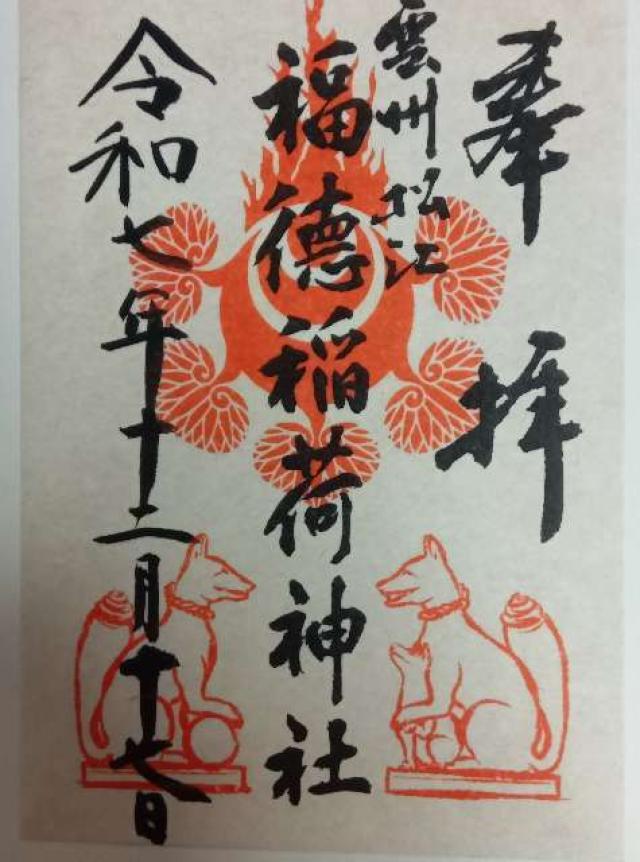 奉拝
雲州松江
福徳稲荷神社
令和七年十二月十七日